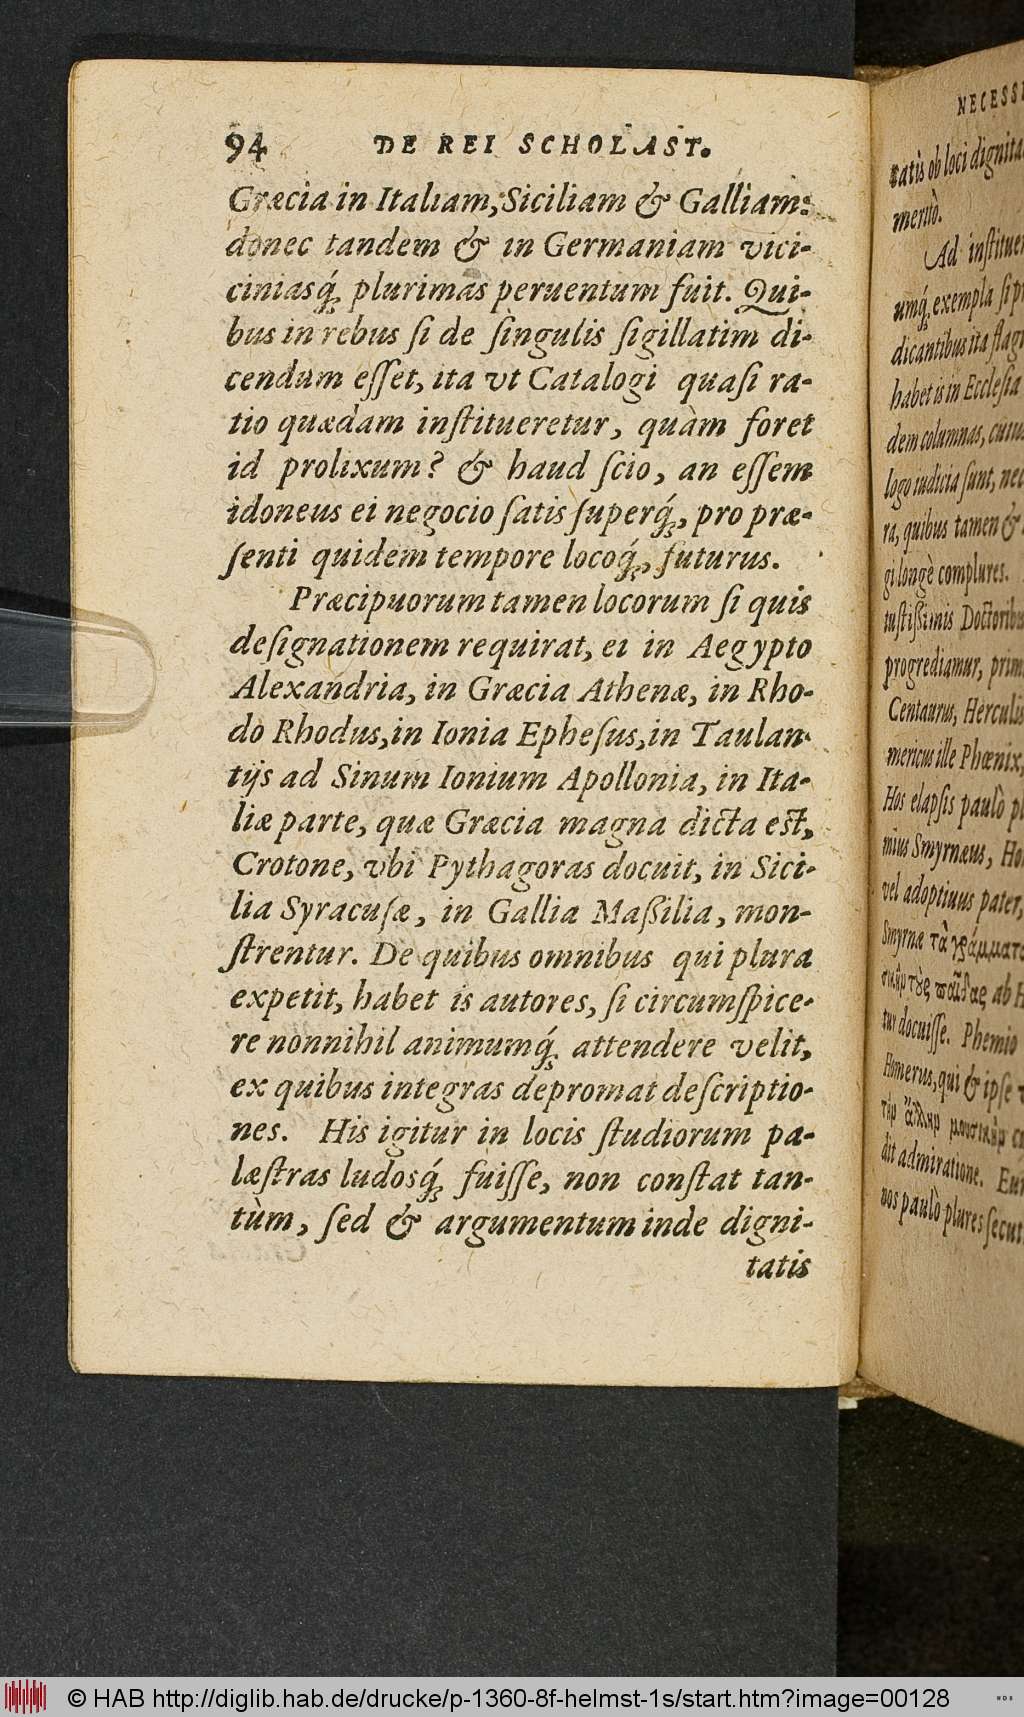 94 DE REI SCHOLAST.
Græcia in Italiam, Siciliam & Galliam:
donec tandem & in Germaniam vici-
ciniasq́; plurimas peruentum fuit. Qui-
bus in rebus ſi de ſingulis ſigillatim di-
cendum eſſet, ita vt Catalogi quaſi ra-
tio quædam inſtitueretur, quàm foret
id prolixum? & haud ſcio, an eſſem
idoneus ei negocio ſatis ſuperq́;, pro præ-
ſenti quidem tempore locoq́;, futurus.
Præcipuorum tamen locorum ſi quis
deſignationem requirat, ei in Aegypto
Alexandria, in Græcia Athenæ, in Rho-
do Rhodus, in Ionia Epheſus, in Taulan-
tijs ad Sinum Ionium Apollonia, in Ita-
liæ parte, quæ Græcia magna dicta eſt,
Crotone, vbi Pythagoras docuit, in Sici-
lia Syracuſæ, in Gallia Maßilia, mon-
ſtrentur. De quibus omnibus qui plura
expetit, habet is autores, ſi circumſpice-
re nonnihil animumq́; attendere velit,
ex quibus integras depromat deſcriptio-
nes. His igitur in locis ſtudiorum pa-
læſtras ludosq́; fuiſſe, non conſtat tan-
tùm, ſed & argumentum inde digni-
tatis
NECESSI
tatis ob loci dignita
meritò.
Ad inſtituen
umq́; exempla ſi p
dicantibus ita flag
habet is in Eccleſia
dem columnas, cuiu
logo iudicia ſunt, nec
ra, quibus tamen &
gi longè complures.
tuſtißimis Doctoribu
progrediamur, prim
Centaurus, Herculis
mericus ille Phœnix,
Hos elapſis paulò pl
mius Smyrnæus, Ho
vel adoptiuus pater,
Smyrnæ τὰ γράμματα
τοὺς παῖδας ab H
tur docuiſſe. Phemio
Homerus, qui & ipſe
τὴν ἄλλην μουσικὴν
dit admiratione. Eu
nos paulò plures ſecut
© HAB http://diglib.hab.de/drucke/p-1360-8f-helmst-1s/start.htm?image=00128